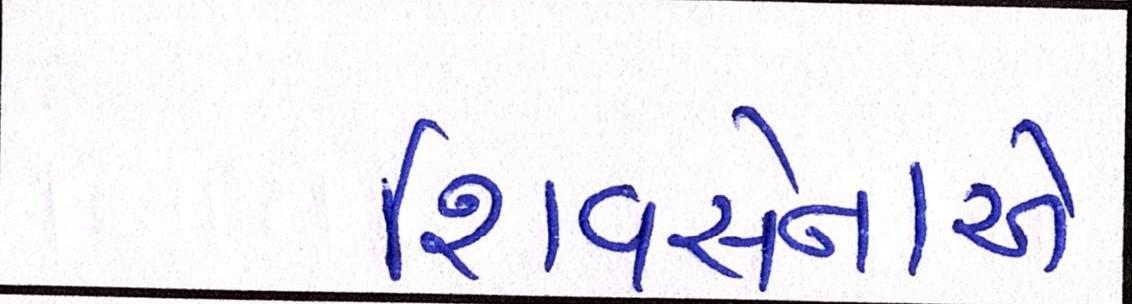 શિવસેનાએ